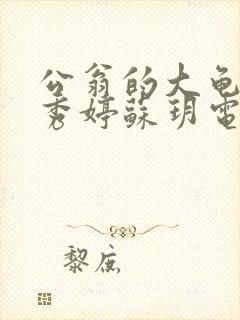 公翁的大龟
秀婷蘇玥電
黎底